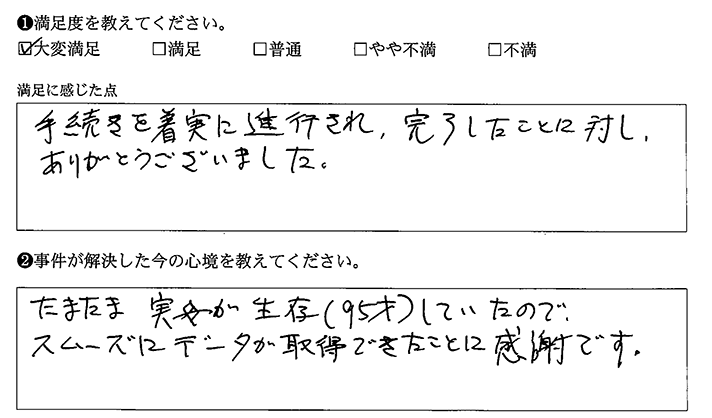 ❶満足度を教えてください。
☑大変満足 □満足 □普通 □やや不満 □不満
満足に感じた点
手続きを着実に進行され,完了したことに対し,
ありがとうございました。
❷事件が解決した今の心境を教えてください。
たまたま 実母が生存(95才)していたので、
スムーズにデータが取得できたことに感謝です。